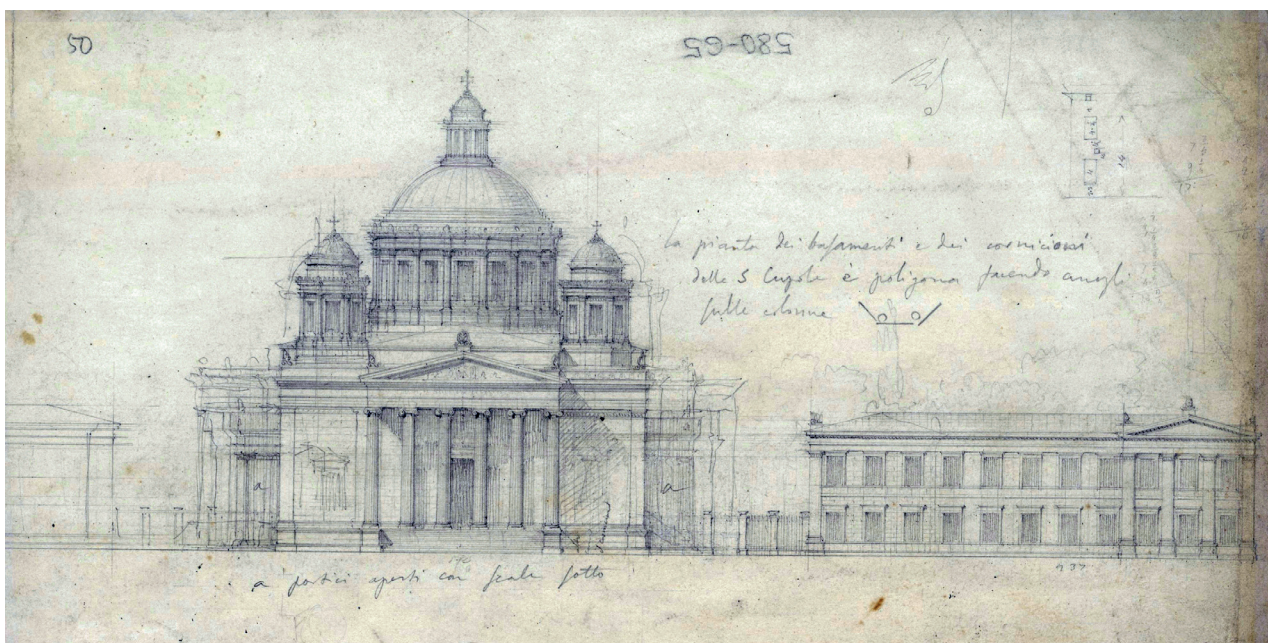 50
580-65
La pianta dei basamenti e dei cornicioni
delle 5 Cupole è poligona facendo angoli
sulle colonne
a
a
a portici aperti con scale sotto
14